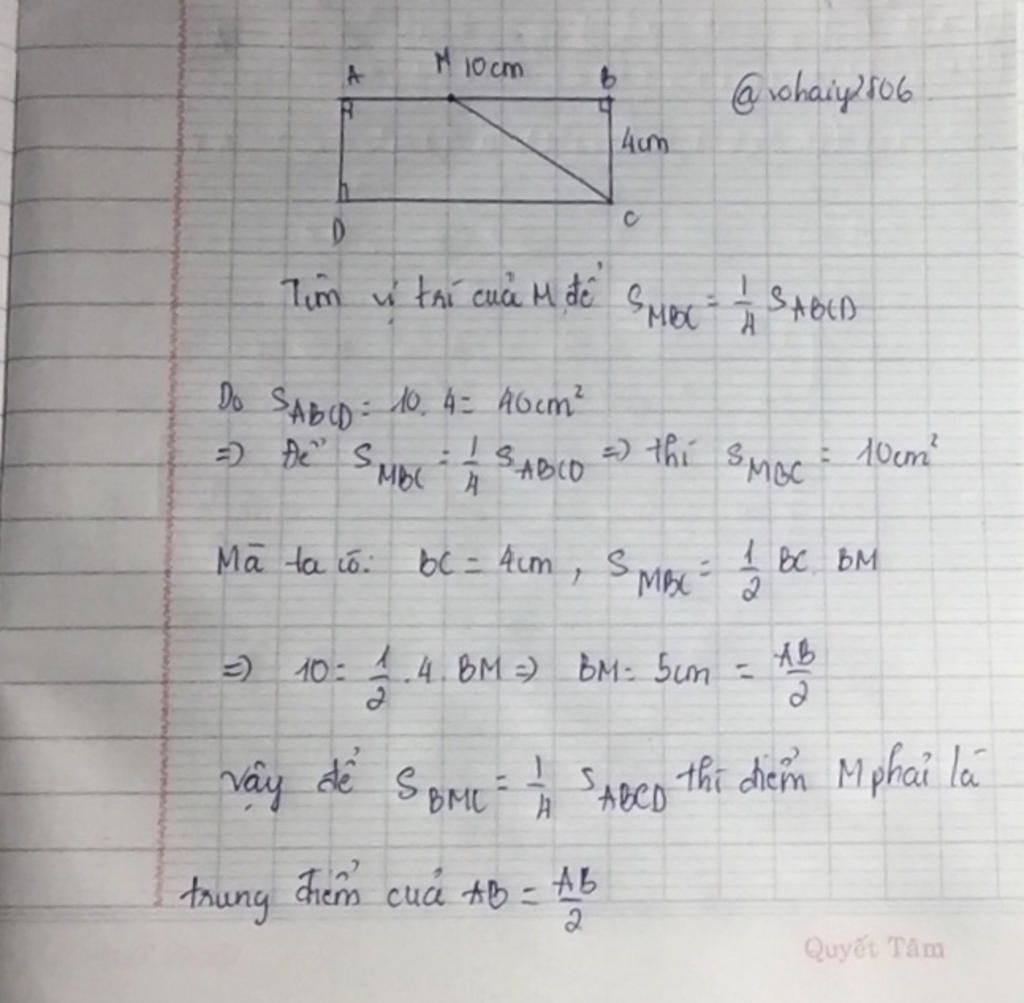 A M 10cm B
@vohaiy2806
4cm
D C
Tìm vị trí của M để S_MBC = 1/4 S_ABCD
Do S_ABCD = 10. 4 = 40cm²
=> Để S_MBC = 1/4 S_ABCD => thì S_MBC = 10cm²
Mà ta có: BC = 4cm , S_MBC = 1/2 BC. BM
=> 10 = 1/2 .4. BM => BM = 5cm = AB/2
Vậy để S_BMC = 1/4 S_ABCD thì điểm M phải là
trung điểm của AB = AB/2
Quyết Tâm